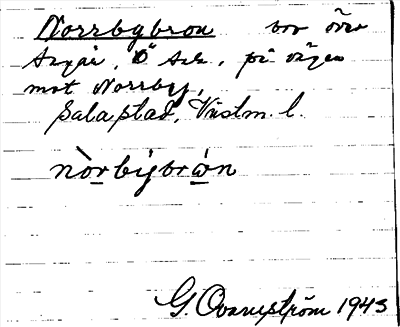 Norrbybron bro över
Sagån, Ö Sala, på vägen
mot Norrby,
Sala stad, Västm. l.
nòrbybrón
G. Ovarnström 1943